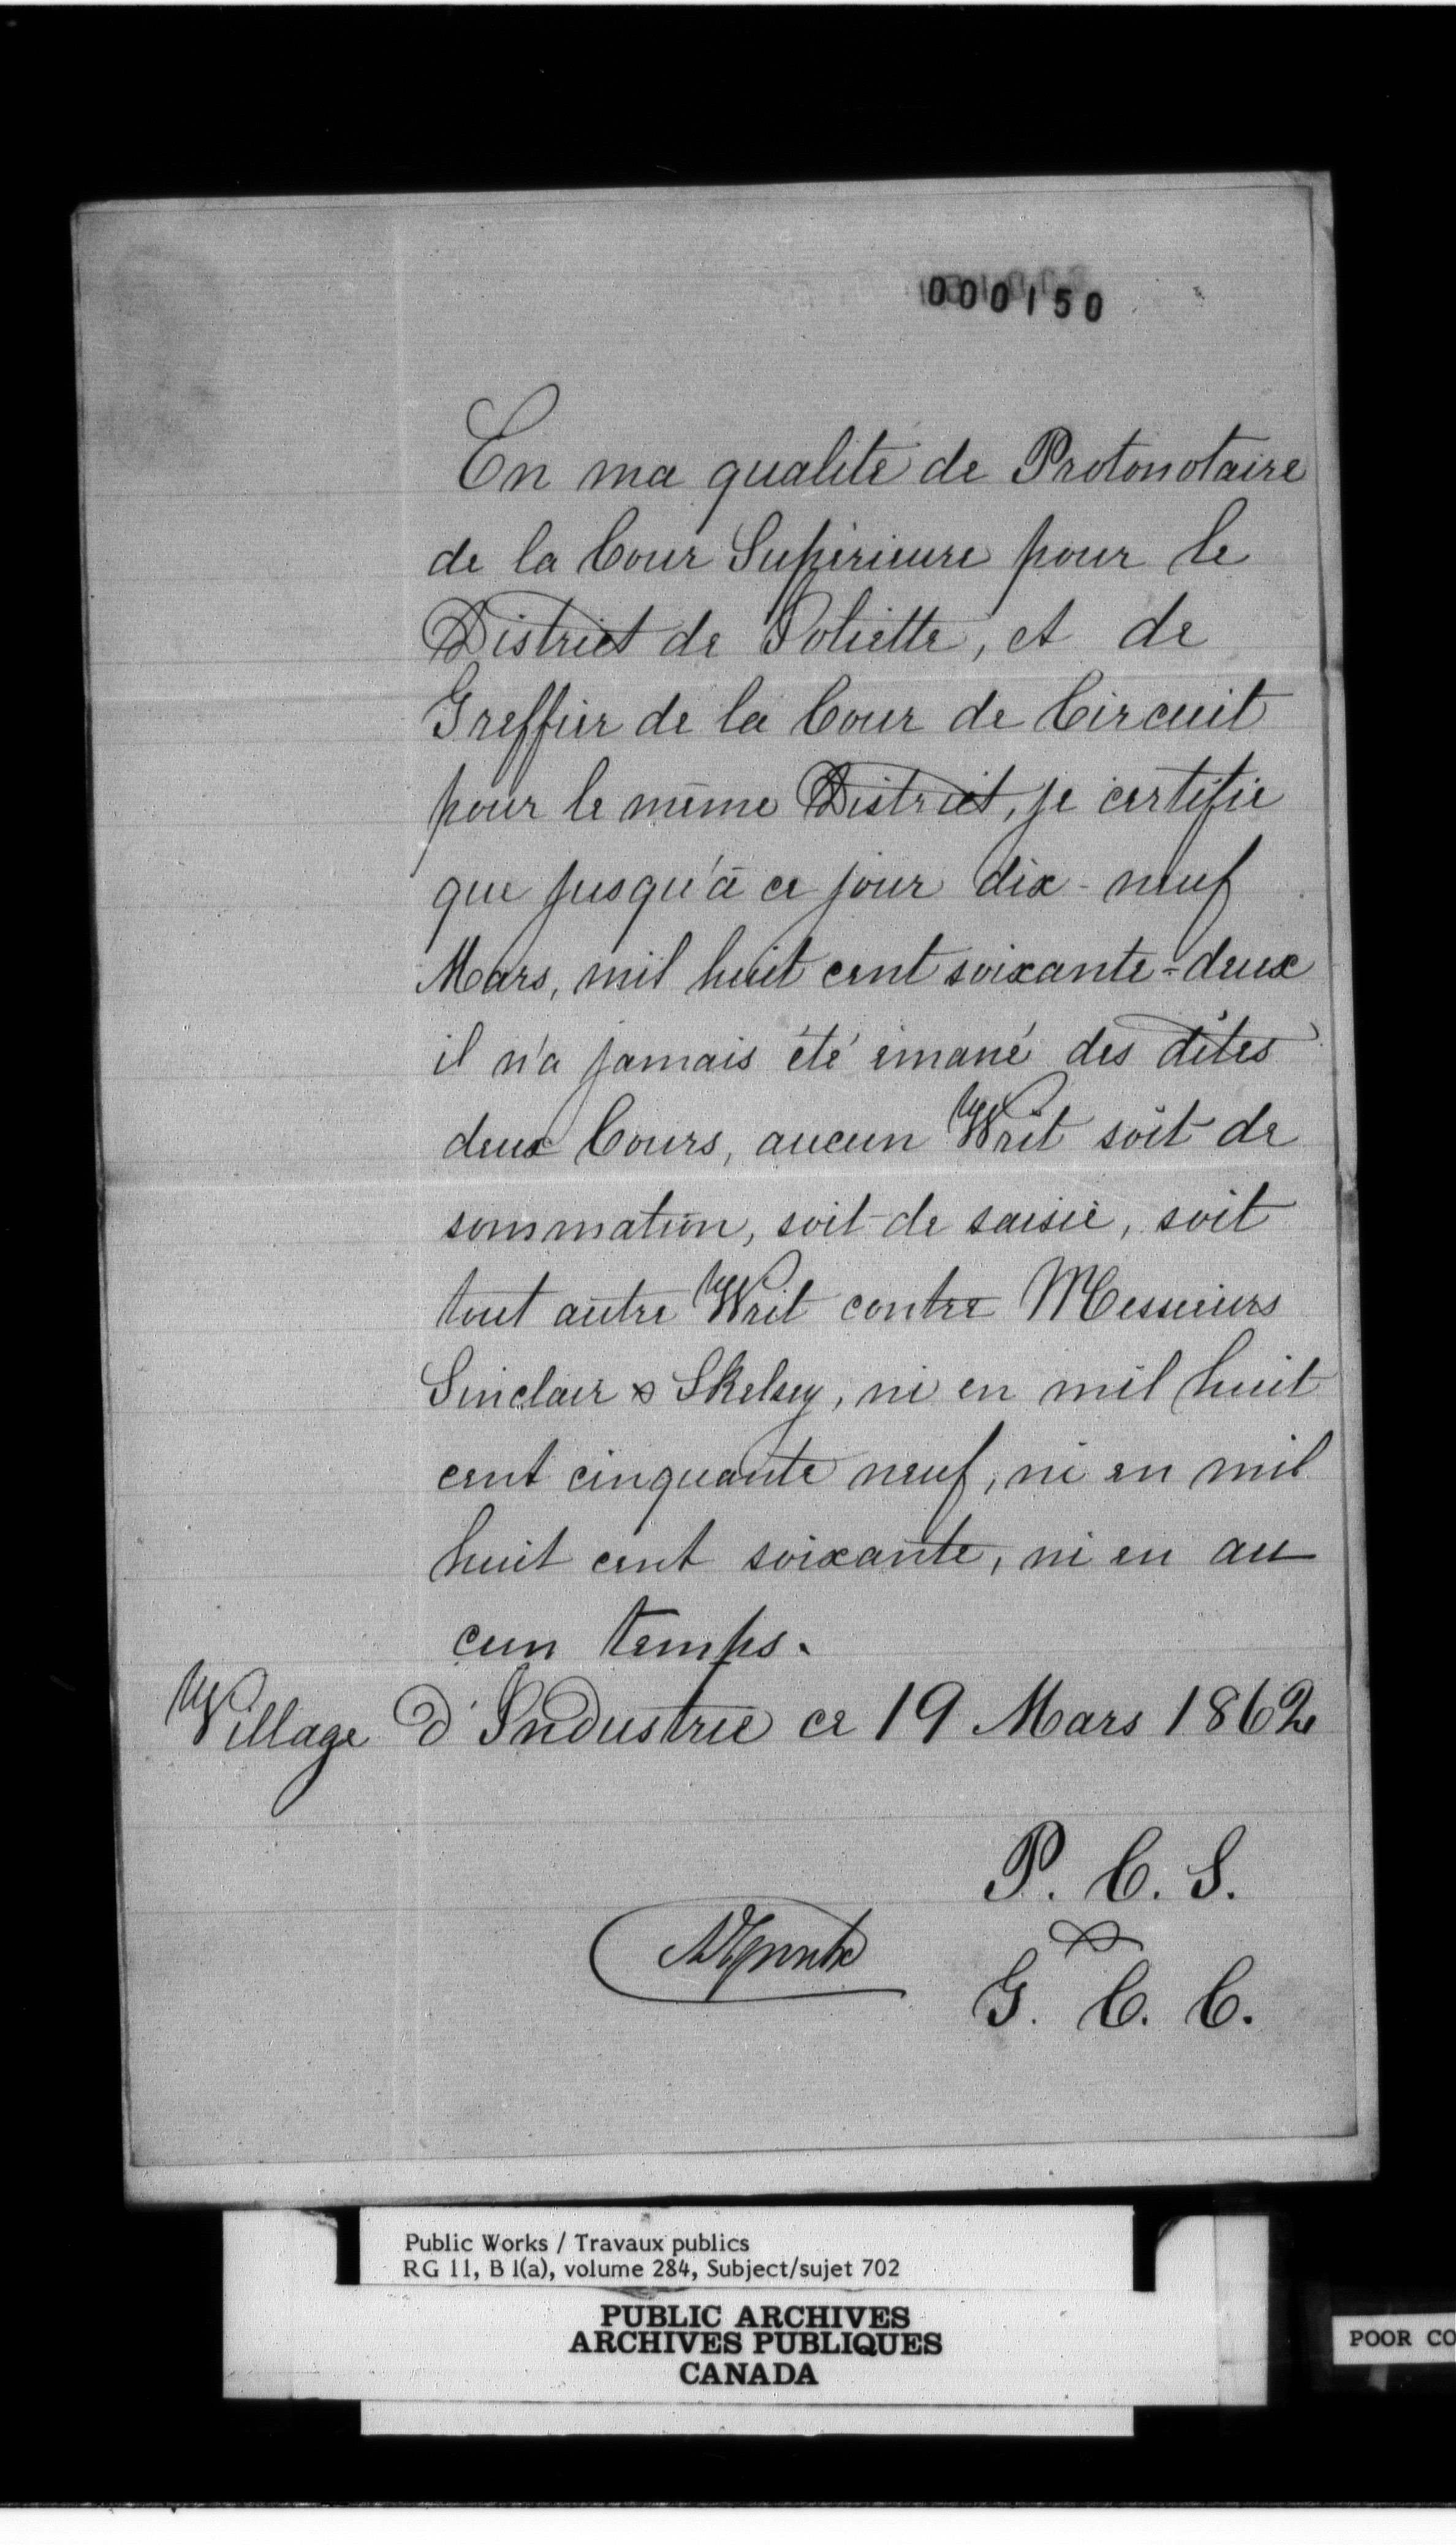 000150
En ma qualité de Protonotaire
de la Cour Supérieure pour le
District de Joliette, et de
Greffier de la Cour de Circuit
pour le même District, je certifie
que jusqu'à ce jour dix-neuf
Mars, mil huit cent soixante-deux
il n'a jamais été émané des dites
deux Cours, aucun Writ soit de
sommation, soit de saisie, soit
tout autre Writ contre Messieurs
Sinclair & Skelsey, ni en mil huit
cent cinquante neuf, ni en mil
huit cent soixante, ni en au
cun temps.
Village d'Industrie ce 19 Mars 1862
P. C. S.
&
G. C. C.
Public Works / Travaux publics
RG 11, B 1(a), volume 284, Subject/sujet 702
PUBLIC ARCHIVES
ARCHIVES PUBLIQUES
CANADA
POOR CO